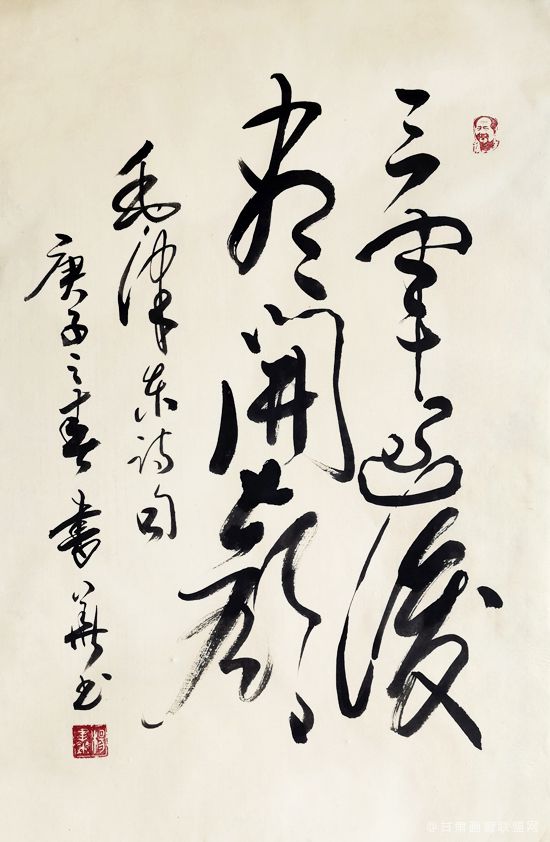 三军过后
尽開颜
毛泽东诗句
庚子之春 書華书
@甘肃画廊联盟网